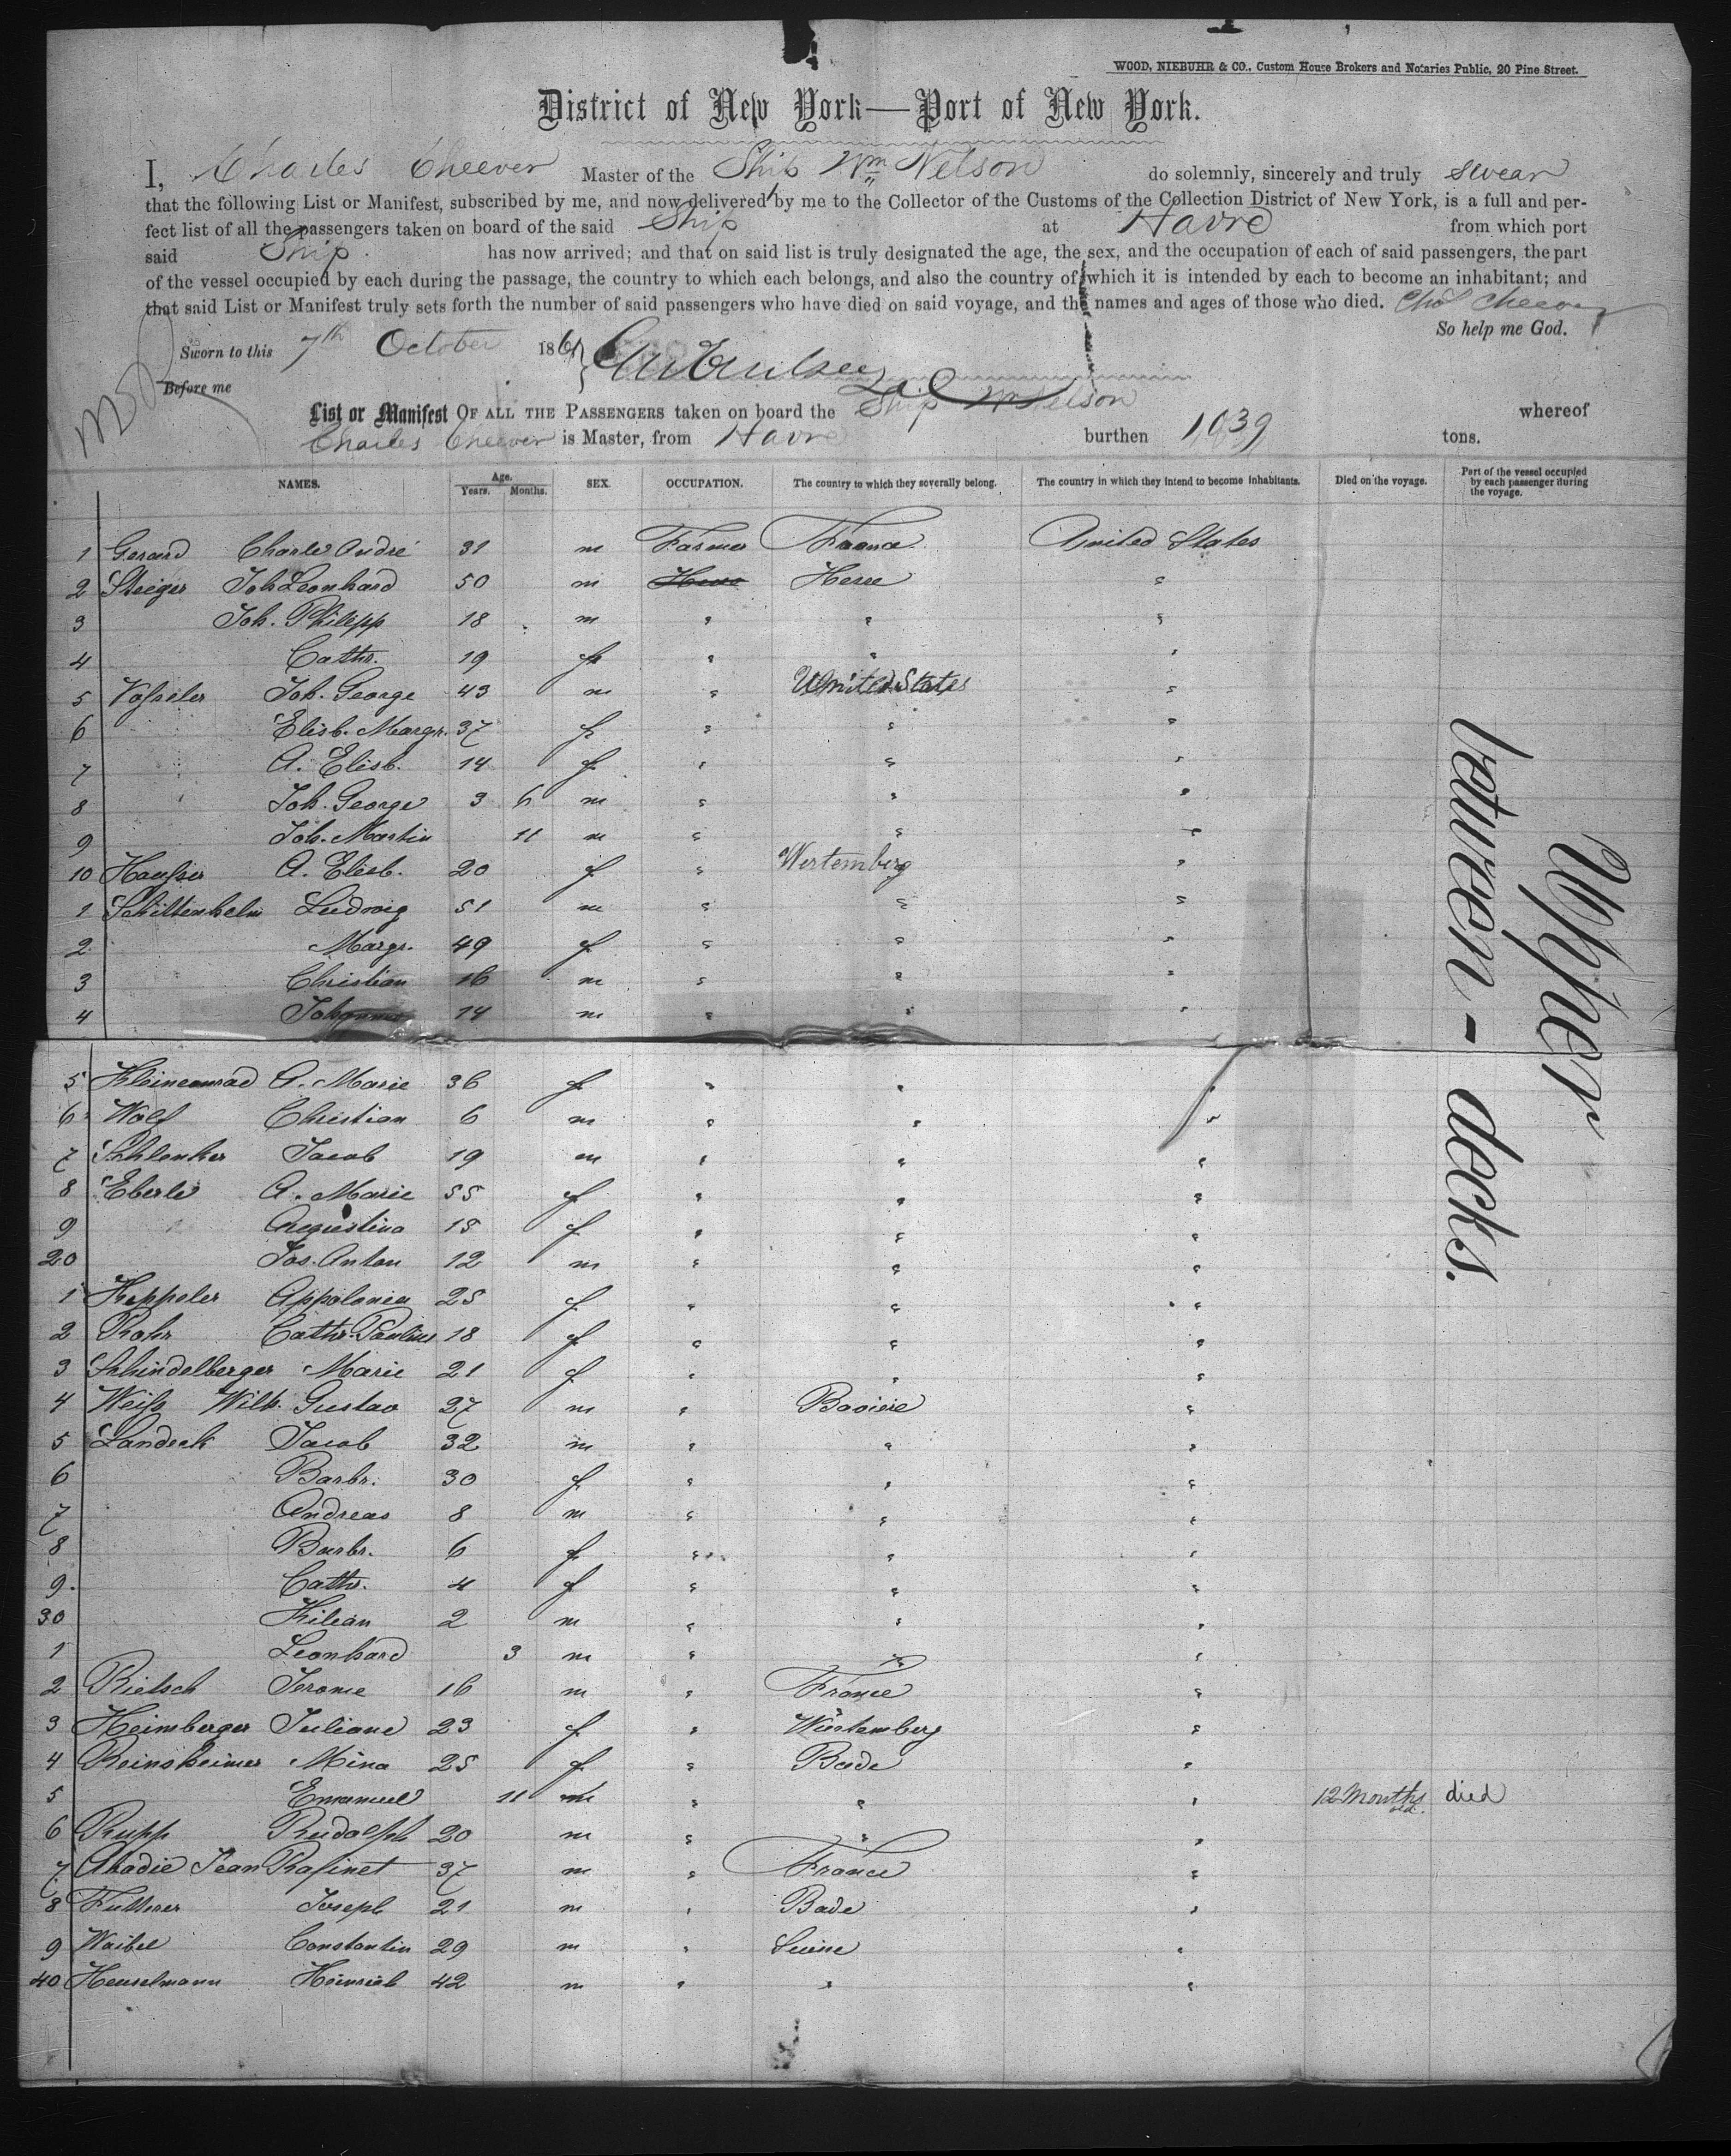 WOOD, NIEBUHR & CO., Custom House Brokers and Notaries Public, 20 Pine Street.
District of New York—Port of New York.
I, Charles Cheever Master of the Ship Wm Nelson do solemnly, sincerely and truly swear
that the following List or Manifest, subscribed by me, and now delivered by me to the Collector of the Customs of the Collection District of New York, is a full and per-
fect list of all the passengers taken on board of the said Ship at Havre from which port
said Ship has now arrived; and that on said list is truly designated the age, the sex, and the occupation of each of said passengers, the part
of the vessel occupied by each during the passage, the country to which each belongs, and also the country of which it is intended by each to become an inhabitant; and
that said List or Manifest truly sets forth the number of said passengers who have died on said voyage, and the names and ages of those who died. Chs Cheever
So help me God.
Sworn to this 7th October 1861
Before me
List or Manifest OF ALL THE PASSENGERS taken on board the Ship Wm Nelson whereof
Charles Cheever is Master, from Havre burthen 1039 tons.
NAMES. Age. Years. Months. SEX. OCCUPATION. The country to which they severally belong. The country in which they intend to become inhabitants. Died on the voyage. Part of the vessel occupied by each passenger during the voyage.
1 Gerard Charles André 31 m Farmer France United States
2 Steiger Joh Leonhard 50 m Hesse "
3 Joh. Philipp 18 m " " "
4 Cathr. 19 f " " "
5 Vosseler Joh. George 43 m " United States "
6 Elisb. Margr. 37 f " " "
7 A. Elisb. 14 f " " "
8 Joh. George 3 6 m " " "
9 Joh. Martin 11 m " " "
10 Hausser A. Elisb. 20 f " Wertemberg "
1 Schittenhelm Ludwig 51 m " " "
2 Margr. 49 f " " "
3 Christian 16 m " " "
4 Johannes 14 m " " "
5 Kleinconrad A. Marie 36 f " " "
6 Wolf Christian 6 m " " "
7 Schlenker Jacob 19 m " " "
8 Eberle A. Marie 55 f " " "
9 Augustina 15 f " " "
20 Jos. Anton 12 m " " "
1 Keppeler Appolonia 25 f " " "
2 Rohr Cathr. Pauline 18 f " " "
3 Schindelberger Marie 21 f " " "
4 Weiss Wilh. Gustav 27 m " Baviere "
5 Landeck Jacob 32 m " " "
6 Barbr. 30 f " " "
7 Andreas 8 m " " "
8 Barbr. 6 f " " "
9. Cathr. 4 f " " "
30 Kilian 2 m " " "
1 Leonhard 3 m " " "
2 Rietsch Jerome 16 m " France "
3 Heimberger Juliane 23 f " Würtemberg "
4 Reinsheimer Mina 25 f " Bade "
5 Emanuel 11 m " " " 12 Months old. died
6 Rupp Rudolph 20 m " " "
7 Abadie Jean Rafinet 37 m " France "
8 Futterer Joseph 21 m " Bade "
9 Waibel Constantin 29 m " Suisse "
40 Henselmann Heinrich 42 m " " "
Upper
between - decks.